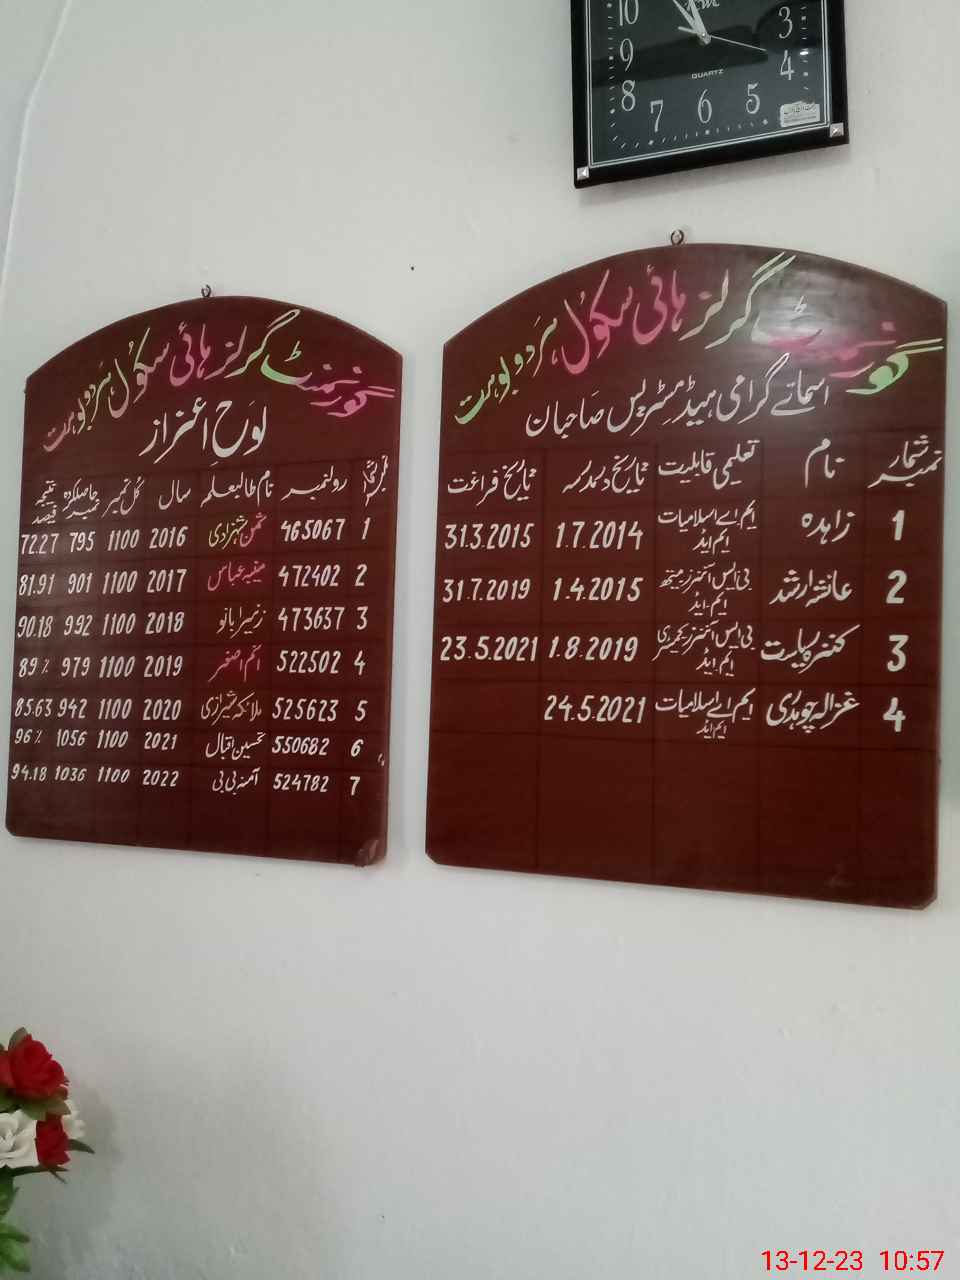 10
9
8
7
6
5
4
3
QUARTZ
گورنمنٹ گرلز ہائی سکول ہردوبوہت
لوحِ اعزاز
رولنمبر نام طالبعلمہ سال کل نمبر حاصلکردہ نمبر نتیجہ فیصد
1 465067 ثمن شہزادی 2016 1100 795 72.27
2 472402 عباس 2017 1100 901 81.91
3 473637 زنیرا بانو 2018 1100 992 90.18
4 522502 انعم اصغر 2019 1100 979 89٪
5 525623 ملائکہ شیرازی 2020 1100 942 85.63
6 550682 تحسین اقبال 2021 1100 1056 96٪
7 524782 آمنہ بی بی 2022 1100 1036 94.18
گورنمنٹ گرلز ہائی سکول ہردوبوہت
اسمائے گرامی ہیڈ مسٹریس صاحبان
نمبر شمار نام تعلیمی قابلیت تاریخ فراغت
1 زاہدہ ایم اے اسلامیات ایم ایڈ 1.7.2014 31.3.2015
2 عائشہ ارشد بی ایس آنرز میتھ ایم-ایڈ 1.4.2015 31.7.2019
3 ریاست بی ایس آنرز کیمسٹری ایم ایڈ 1.8.2019 23.5.2021
4 غزالہ چوہدری ایم اے اسلامیات ایم ایڈ 24.5.2021
13-12-23 10:57